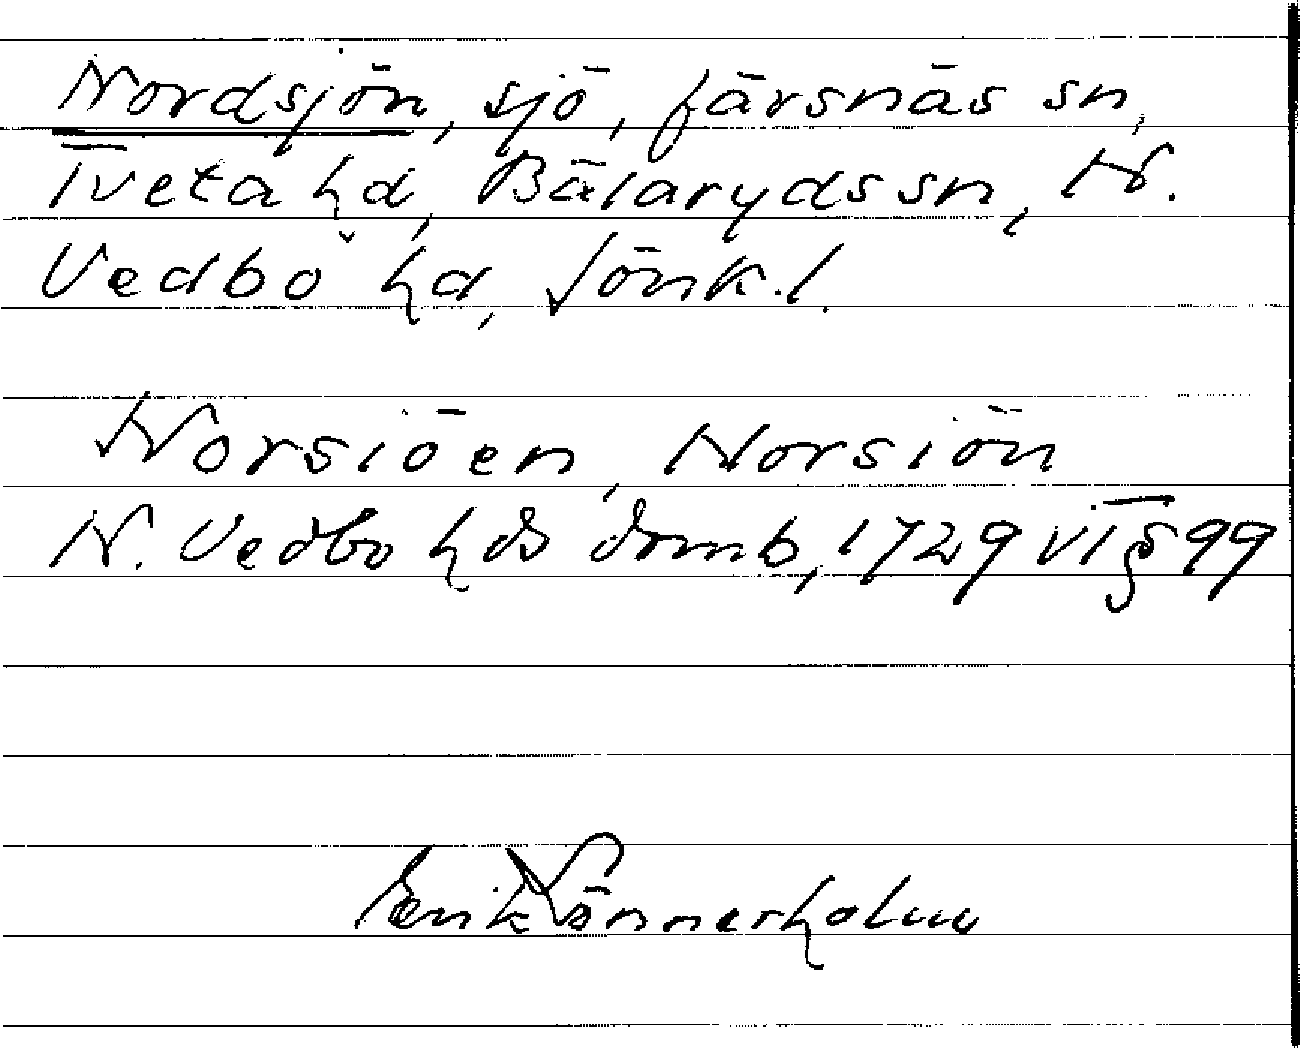 Nordsjön, sjö, Järsnäs sn,
Tveta hd, Bälaryds sn, N.
Vedbo hd, Jönk. l.
Norsiöen, Norsiön
N. Vedbo hds domb, 1729 VI § 99
Erik Lönnerholm